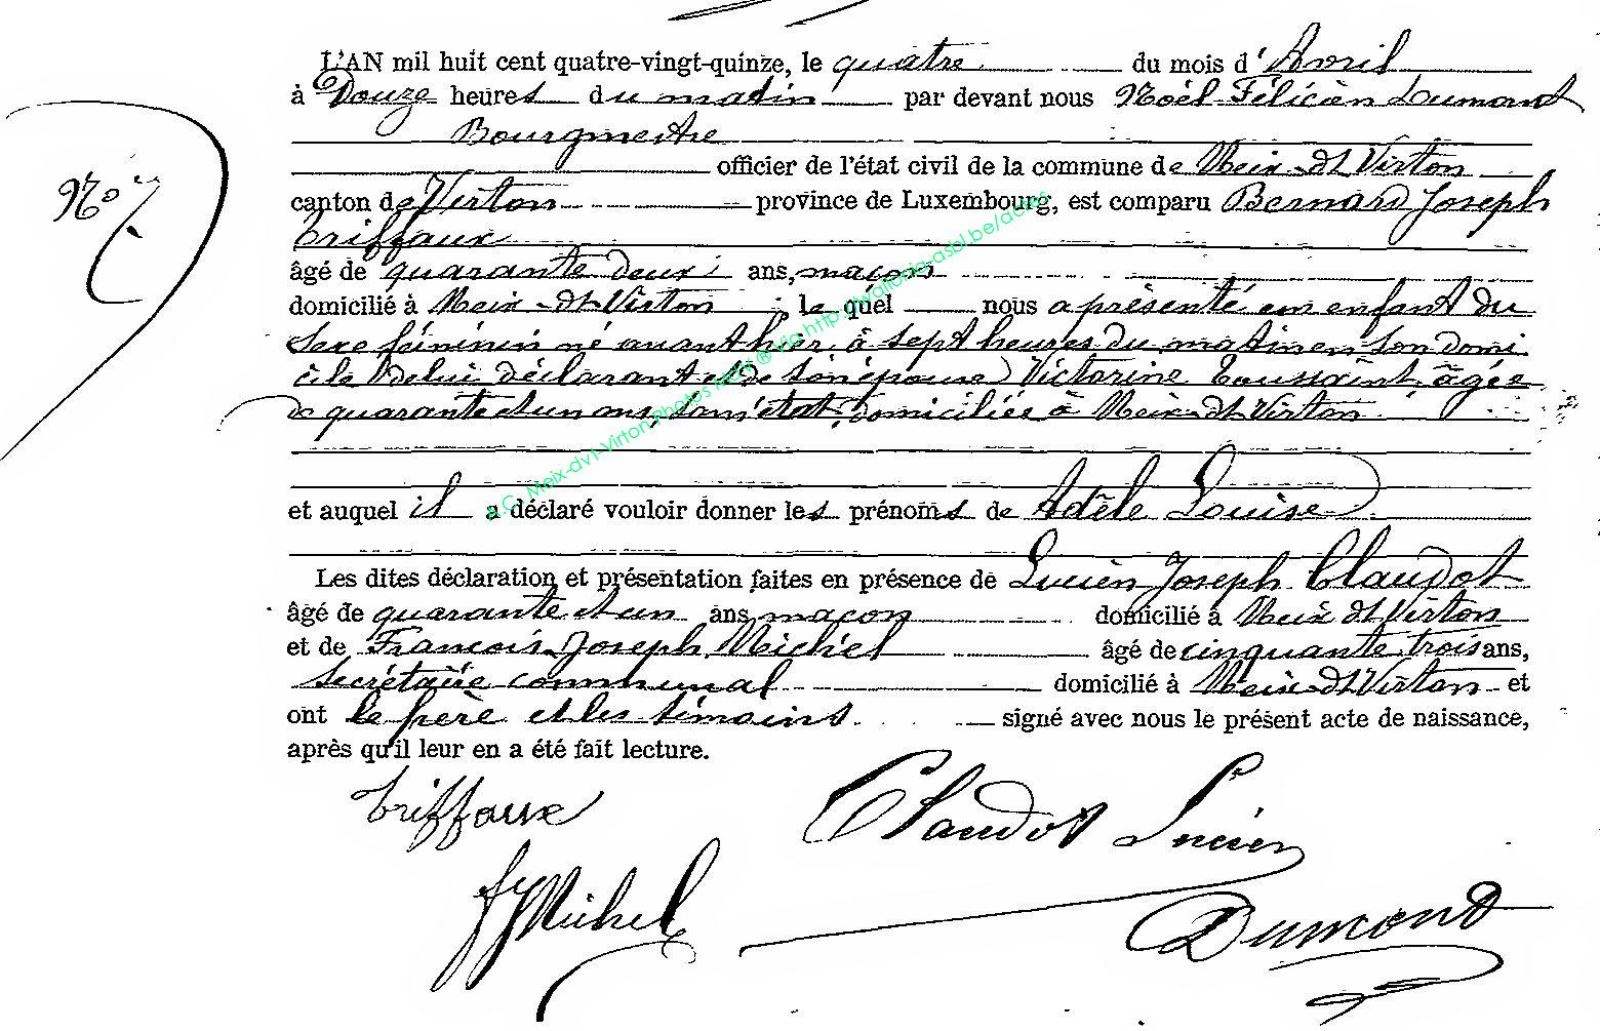 L'AN mil huit cent quatre-vingt-quinze, le quatre du mois d'Avril
à Douze heures du matin par devant nous Noël Félicien Dumont
Bourgmestre
officier de l'état civil de la commune de Meix-dt Virton
N° 7
canton de Virton province de Luxembourg, est comparu Bernard Joseph
Triffaux
âgé de quarante deux ans, maçon
domicilié à Meix-dt-Virton le quel nous a présenté un enfant du
sexe féminin né avant hier à sept heures du matin en son domi
cile de lui déclarant et de son épouse Victorine Toussaint, âgée
de quarante et un ans, sans état, domiciliée à Meix-dt Virton
et auquel il a déclaré vouloir donner les prénoms de Adèle Louise
Les dites déclaration et présentation faites en présence de Lucien Joseph Claudot
âgé de quarante et un ans maçon domicilié à Meix dt Virton
et de François Joseph Michel âgé de cinquante trois ans,
secrétaire communal domicilié à Meix-dt Virton et
ont le père et les témoins signé avec nous le présent acte de naissance,
après qu'il leur en a été fait lecture.
Triffaux
Claudot Lucien
fJMichel
Dumont